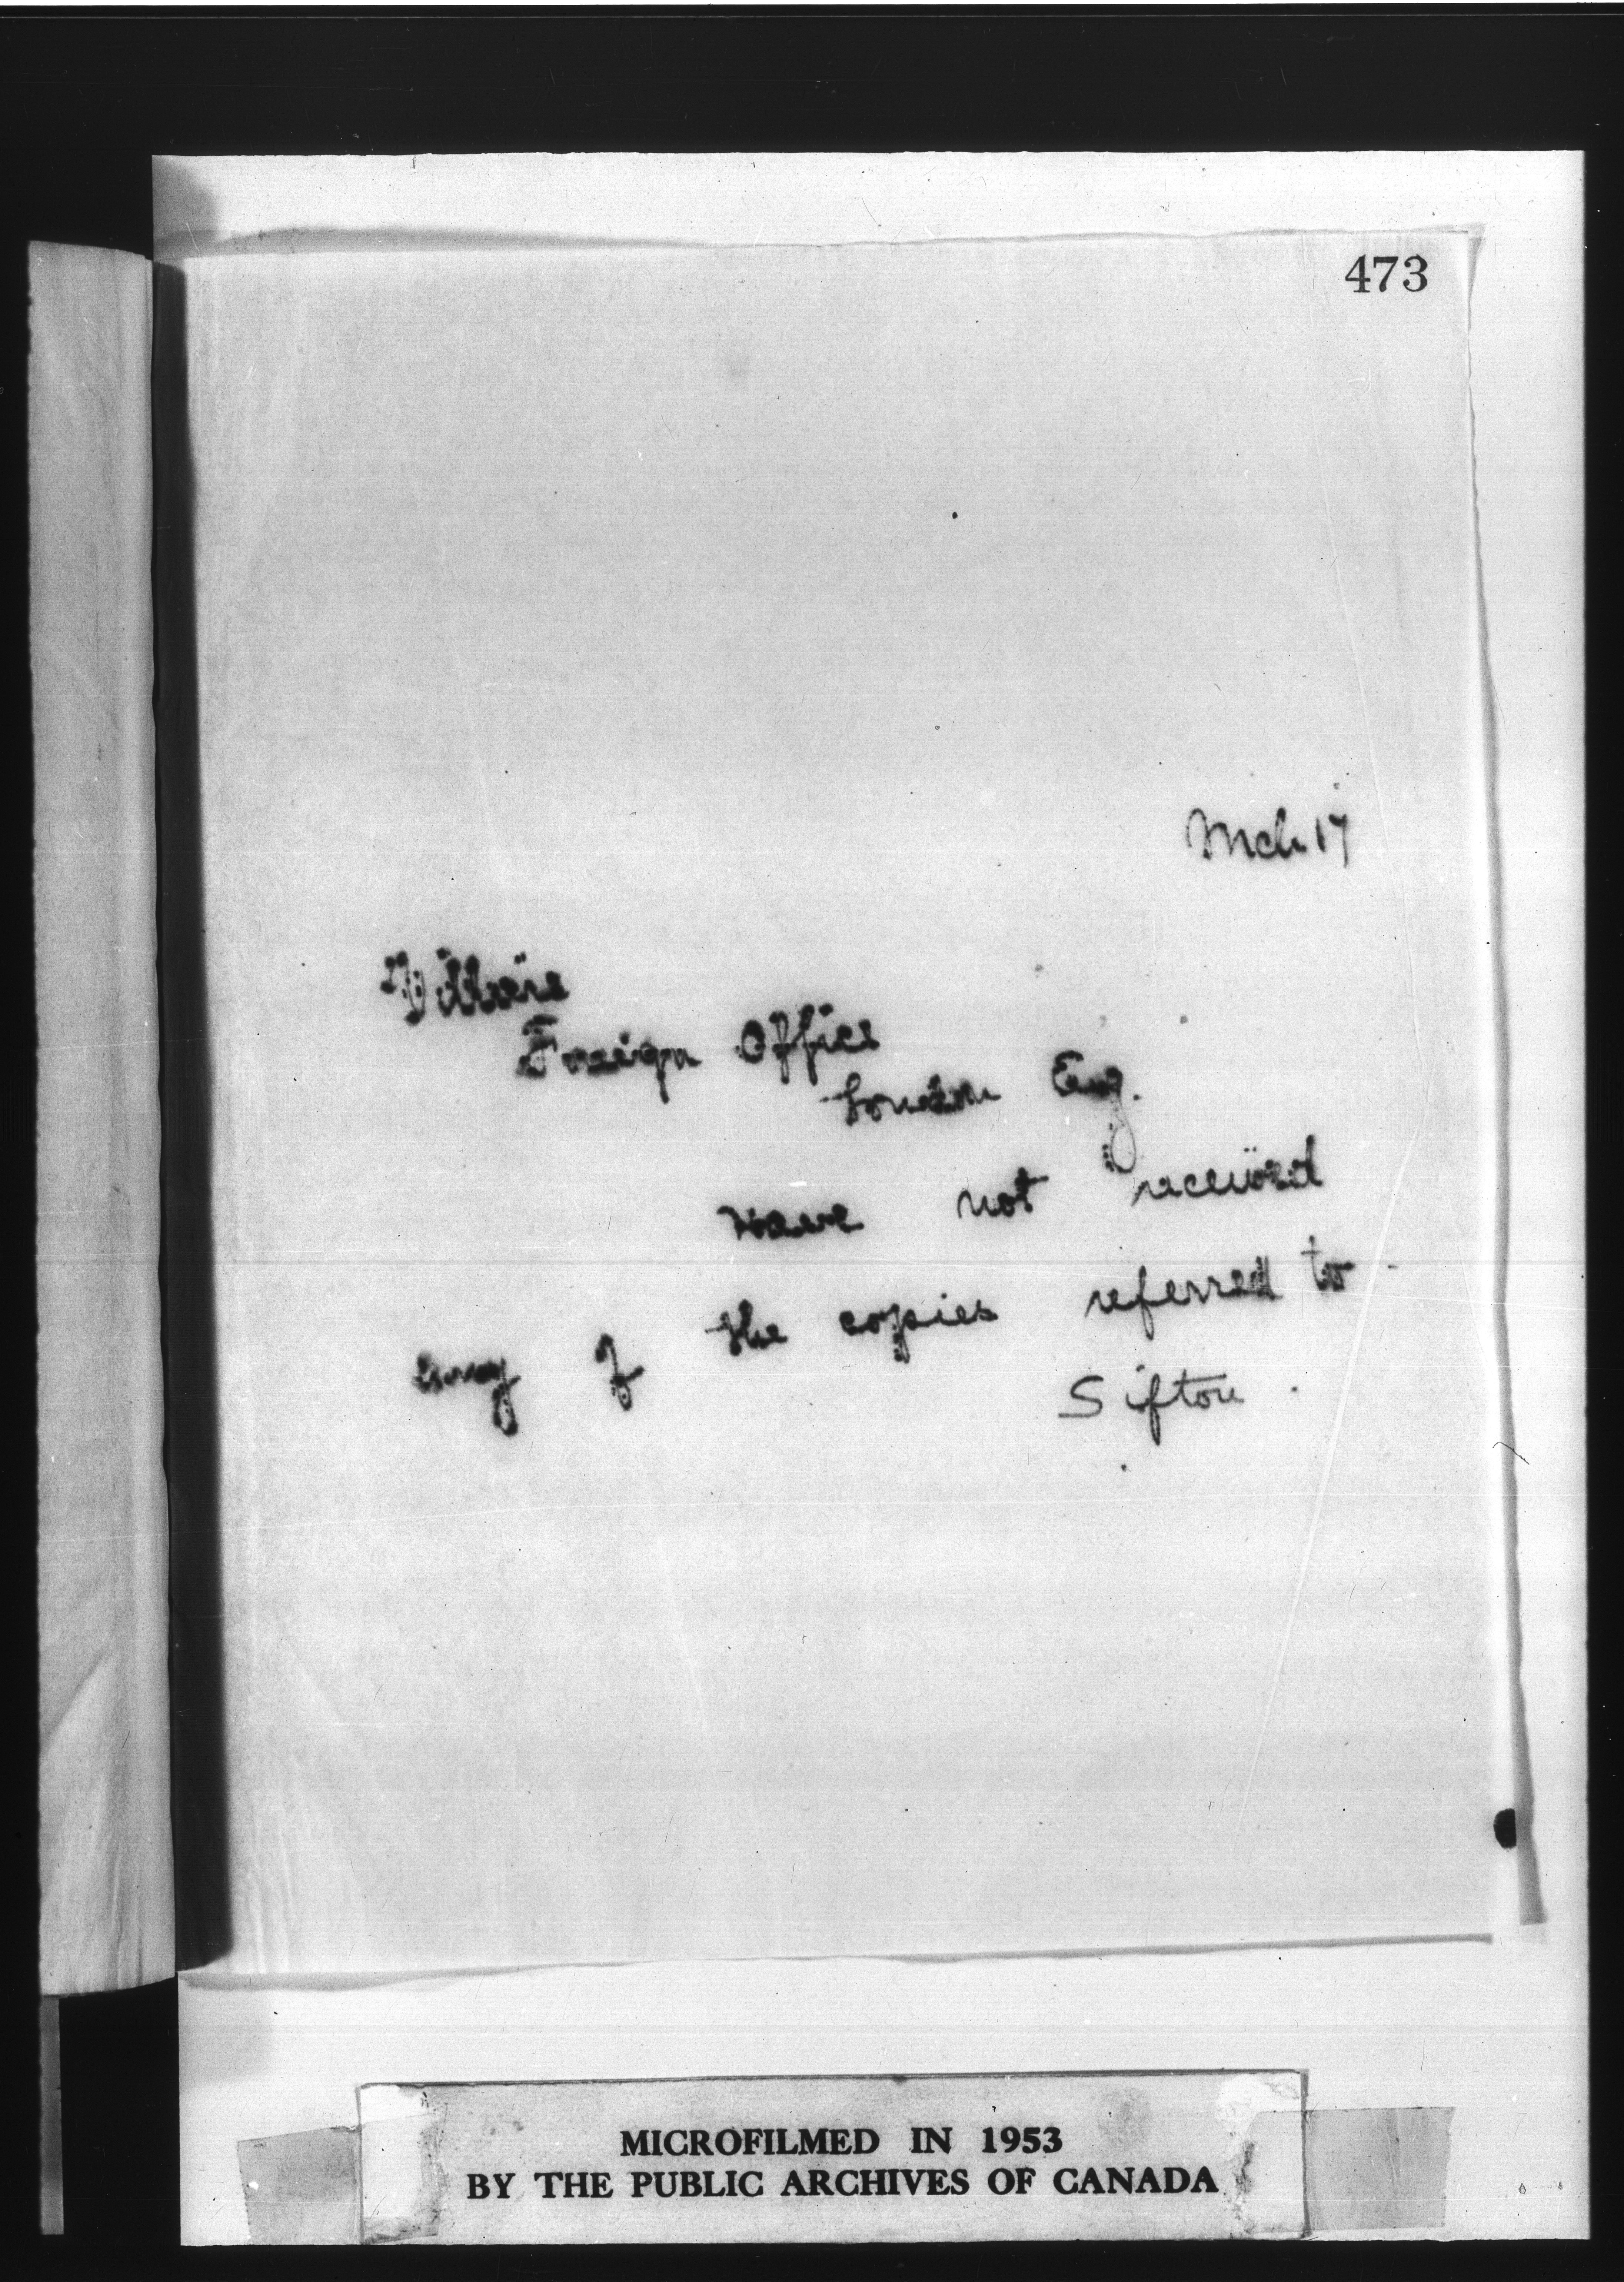 473
Mch 17
Villiers
Foreign Office
London Eng.
Have not received
any of the copies referred to
Sifton.
MICROFILMED IN 1953
BY THE PUBLIC ARCHIVES OF CANADA